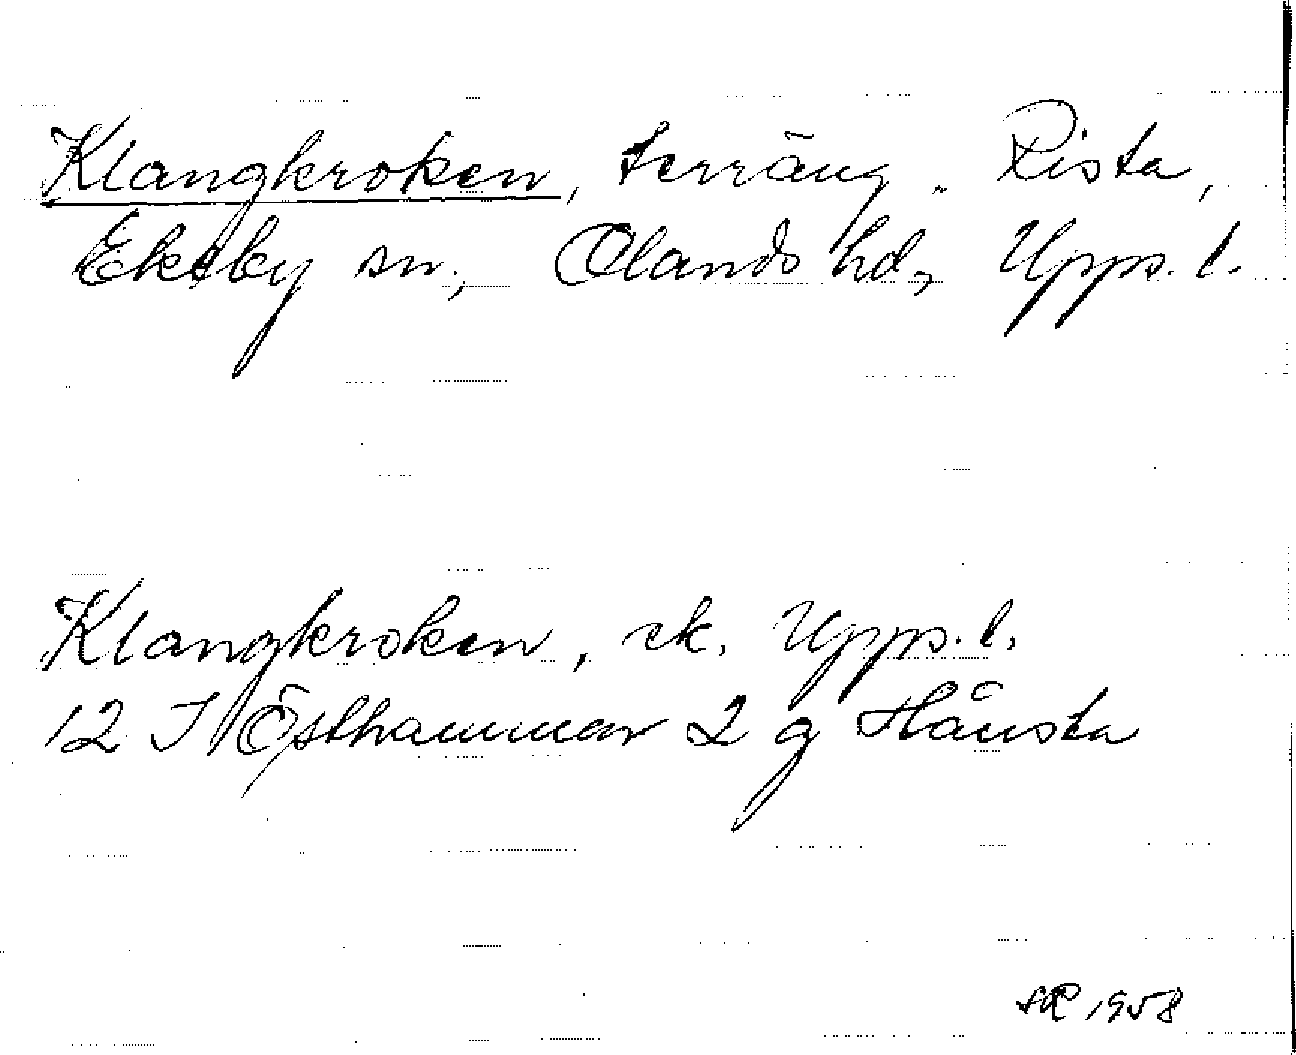 Klangkroken, terräng. Rista,
Ekeby sn., Olands hd, Upps. l.
Klangkroken, ek. Upps. l.
12 I Östhammar 2 g Hänsta
1958